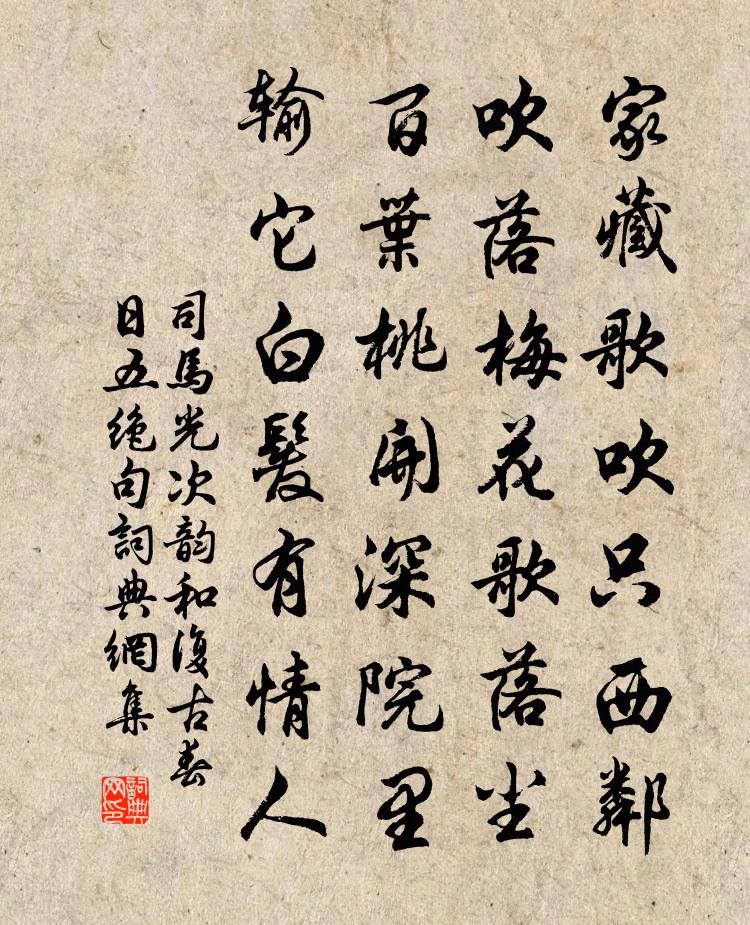 家藏歌吹只西鄰
吹落梅花歌落尘
百葉桃開深院里
輸它白髮有情人
司馬光次韵和復古春
日五絶句詞典網集
詞典网印